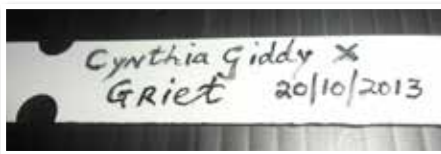 Cynthia Giddy X
GRiet 20/10/2013